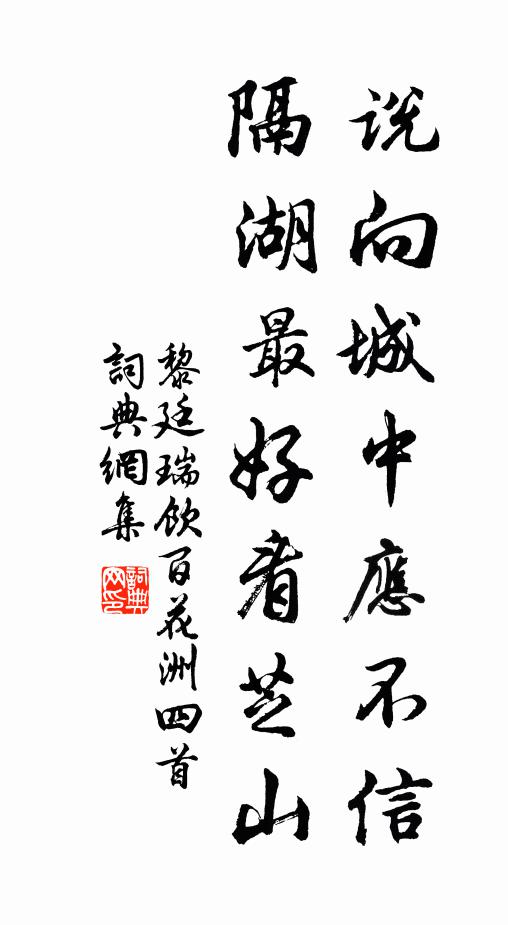 说向城中應不信
隔湖最好看芝山
黎廷瑞飲百花洲四首
詞典網集
詞典
网印